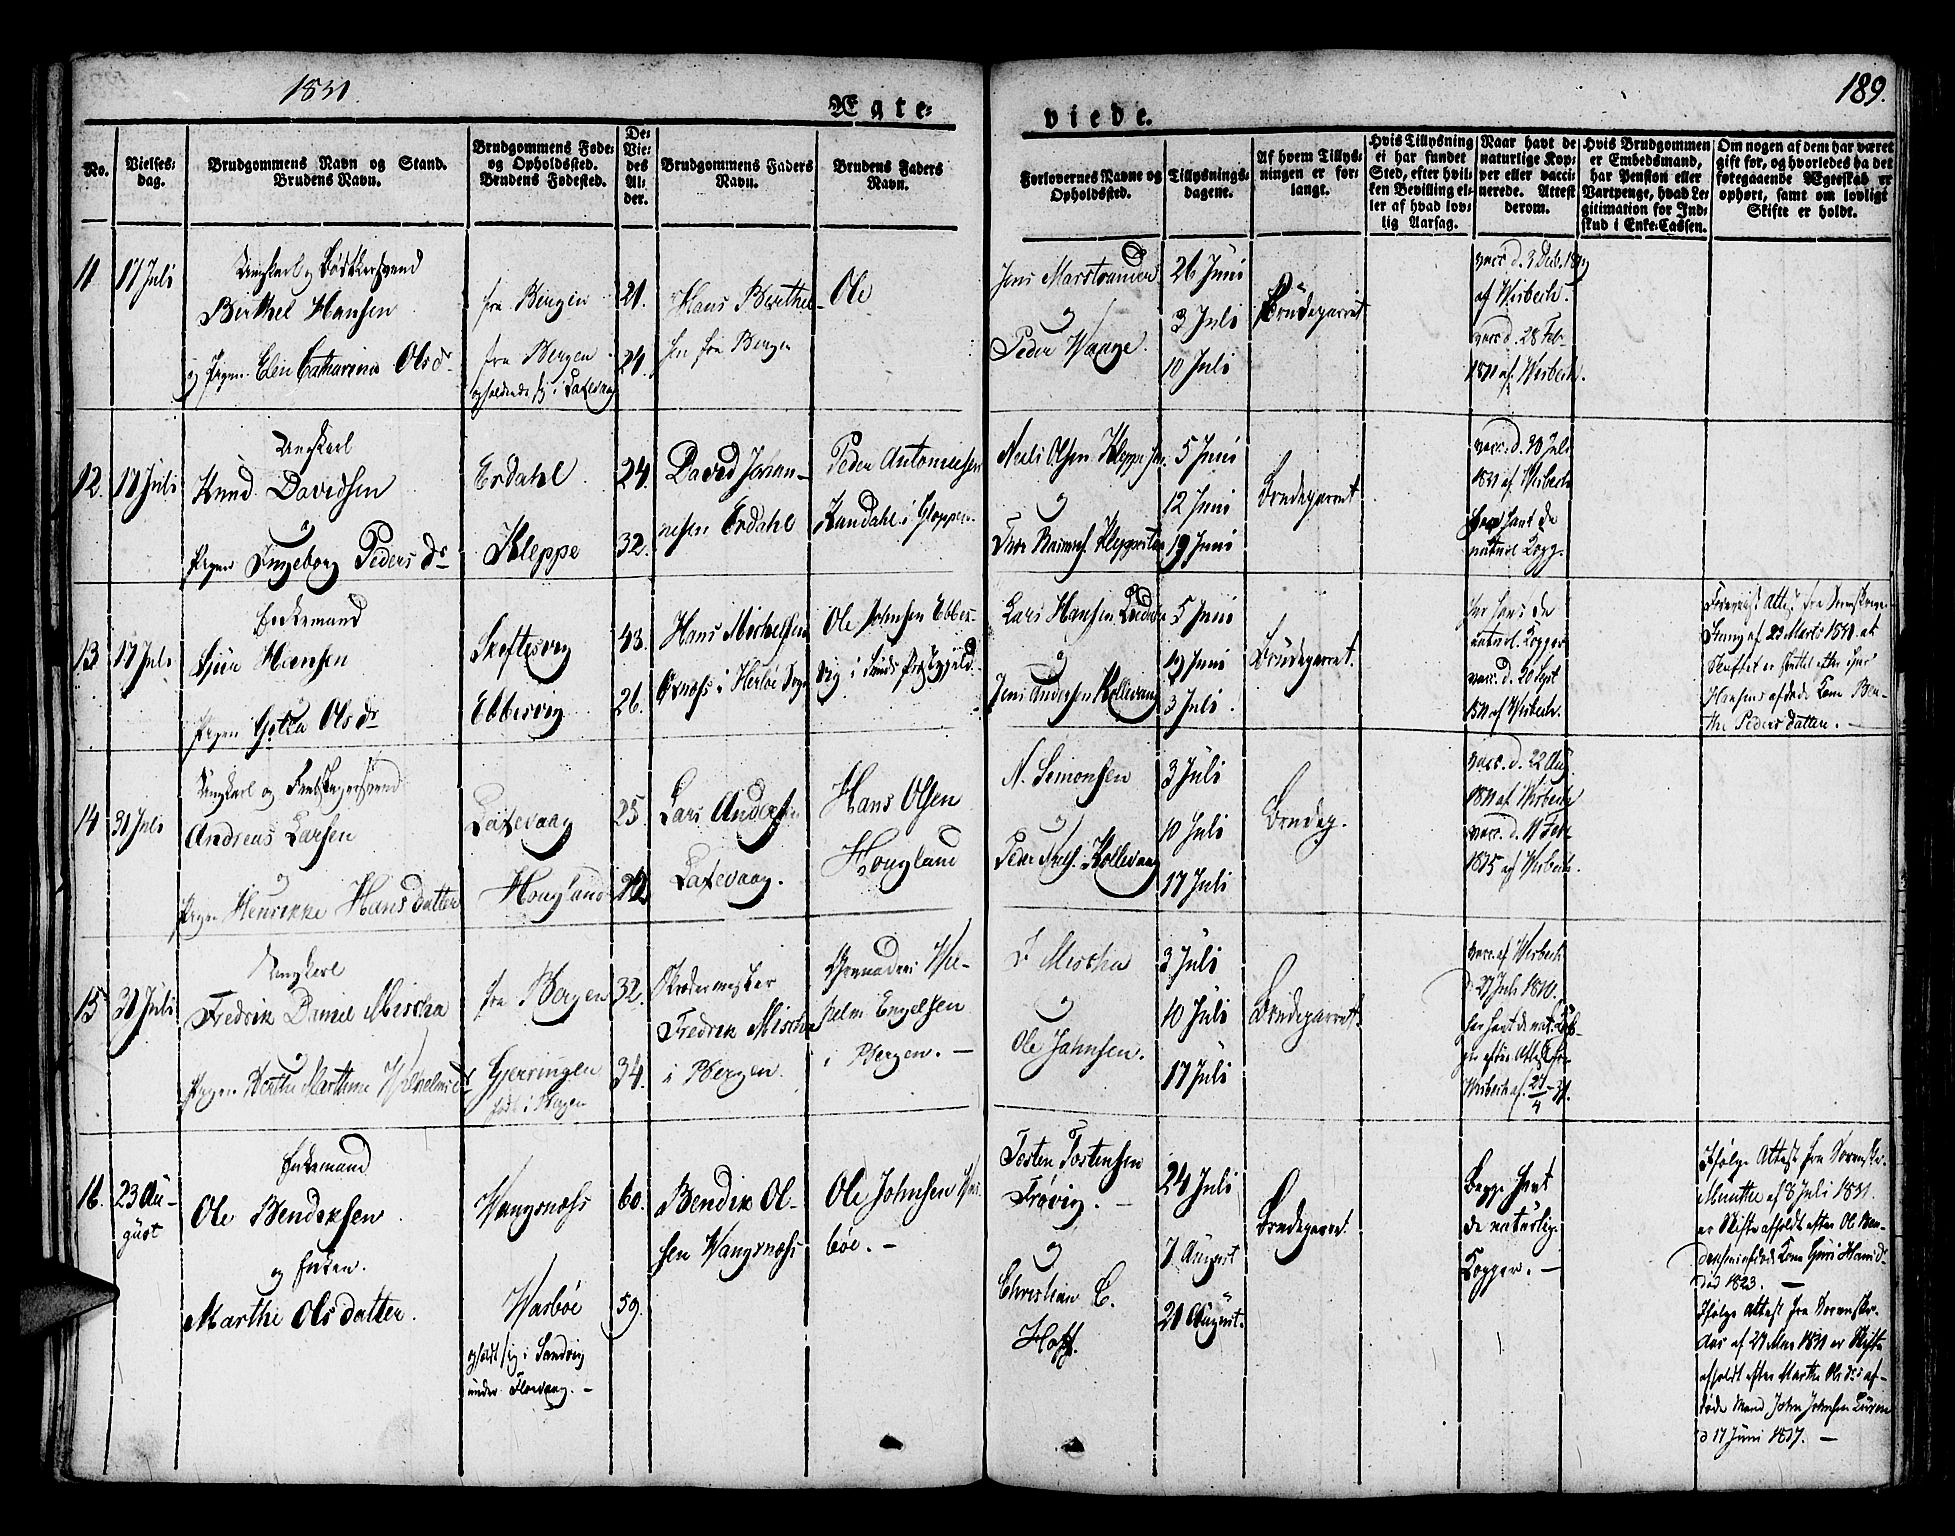 1831.
189.
Ægte-
viede.
No.
Vielses-
dag.
Brudgommens Navn og Stand.
Brudens Navn.
Brudgommens Føde-
og Opholdssted.
Brudens Fødested.
De
Vie-
des
Al-
der.
Brudgommens Faders
Navn.
Brudens Faders
Navn.
Forlovernes Navne og
Opholdssted.
Tillysnings-
dagene.
Af hvem Tillys-
ningen er for-
langt.
Hvis Tillysning
ei har fundet
Sted, efter hvil-
ken Bevilling el-
ler af hvad lov-
lig Aarsag.
Naar havt de
naturlige Kop-
per eller vacci-
nerede. Attest
derom.
Hvis Brudgommen
er Embedsmand,
har Pension eller
Vartpenge, hvad Le-
gitimation for Ind-
skud i Enke-Cassen.
Om nogen af dem har været
gift før, og hvorledes da det
foregaaende Ægteskab er
ophørt, samt om lovligt
Skifte er holdt.
11
17 Juli
Ungkarl og Bødkersvend
Berthel Hansen
og Pigen Elen Catharina Olsdr
fra Bergen
fra Bergen
opholdende sig i Laxevaag
21.
21.
Hans Berthel-
sen fra Bergen
Ole
Jens Marstrander
og
Peder Waage.
26 Juni
3 Juli
10 Juli
Brudeparret
vacc. d. 3 Decb.
af Wisbech.
vacc. d. 28 Feb.
1811 af Wisbech.
12.
17 Juli
Ungkarl
Knud Davidsen
og
Pigen Ingeborg Pedersdr
Erdahl
Kleppe
24.
32.
David Johan-
nesen Erdahl
Peder Antoniesen
Kandahl i Gloppen
Neils Olsen Kleppe
og
5 Juni
12 Juni
19 Juni
Brudeparret
1831 af Wisbech
har havt de
naturl. Kopp.
13
17 Juli
Enkemand
Hansen
Pigen Olsdr
Skeftesvig
Ebbesvig
43.
26.
Hans Mickelsen
i Herløe Sogn
Ole Johnsen Ebbes-
vig i Sunds Præstegjeld
Lars Hansen
og
Jens Andersen Kollevaag
5 Juni
19 Juni
3 Juli.
Brudeparret.
har havt de
naturl. Kopper
vacc. d. 20 Sept
1811 af Wisbech.
Foreviist Attest fra Sorenskriver
af 29 Marts 1831. at
Skiftet er sluttet efter
Hansens afdøde Kone Ben-
the Pedersdatter. —
14
31 Juli
Ungkarl og
Andreas Larsen
og
Pigen Henrikke Hansdatter
Laxevaag
Hougland
25.
22
Lars Andersen
Laxevaag.
Hans Olsen
Hougland
N. Simonsen
og
Peder Kollevaag
3 Juli
10 Juli
17 Juli
Brudep.
vacc. d. 22 Aug.
1811 af Wisbech
vacc. d. 11 Febr
1815 af Wisbech.
15
31 Juli
Ungkarl
Fredrik Daniel Mischa
og
Pigen Berthe Marthine Wilhelmsdr
fra Bergen
Gjerningen
født i Bergen
32.
34.
Skrædermester
Fredrik Mischa
i Bergen.
Grenader Wil-
helm Engelsen
i Bergen. —
F Mischa
og
Ole Jahnsen.
3 Juli
10 Juli
17 Juli
Brudeparret.
vacc. af Wisbech
d. 27 Juli 1810.
har havt de nat. Kop-
per efter Attest fra
Wisbech af 27/4-31.
16.
23 Au-
gust
Enkemand
Ole Bendixsen
og Enken.
Marthe Olsdatter.
Wangsnæss
Warbøe
opholdt sig i Sandvig
under Florvaag. —
60.
59.
Bendix Ol-
sen Wangsnæss
Ole Johnsen War-
bøe. —
Tosten Tostensen
Frøvig. —
og
Christian C.
Hoff.
24 Juli
7 August
21 August.
Brudeparret.
Begge havt
de naturlig.
Kopper. —
Ifølge Attest fra Sorenskr.
Munthe af 8 Juli 1831.
er Skifte afholdt efter Ole Ben-
dixsens afdøde Kone Guri Hansdr
død 1823. —
Ifølge Attest fra Sorenskr.
Aars af 21 Mai 1831 er Skifte
afholdt efter Marthe Olsdrs af-
døde Mand John Johnsen
d 17 Juni 1817. —